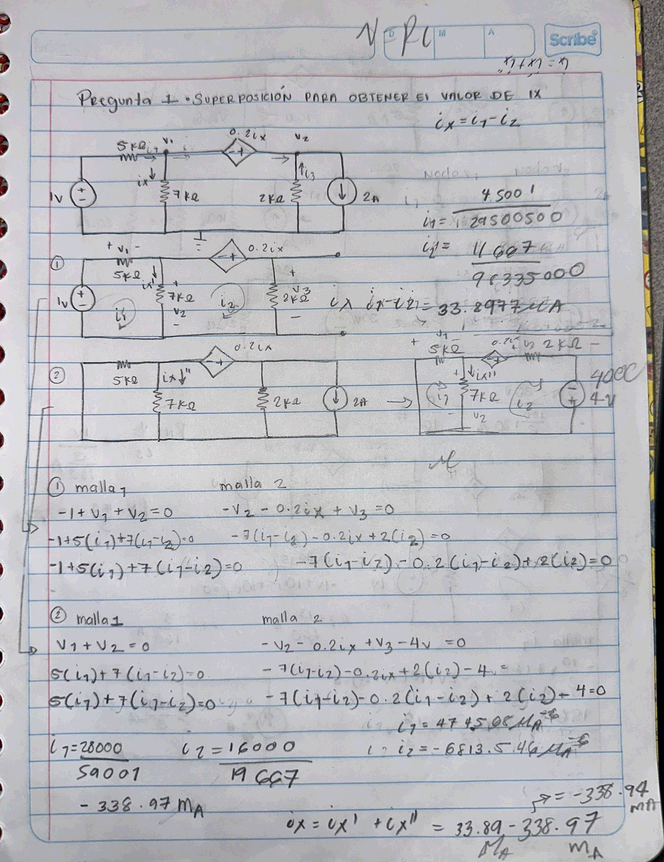 N PC
D M A
Scribe
Pregunta 1 • SUPERPOSICIÓN PARA OBTENER El VALOR DE IX
ix = i1 - i2
5kΩ i1 v1 0.2ix v2
1v ix 7kΩ 2kΩ i3 2A
4.5001
i1 = 29500500
i2 = 11667
98335000
① + v1 - 0.2ix
5kΩ
1v i1 ix' 7kΩ v2 i2 2kΩ v3
ix ix-i2 = 33.8977 A
② 0.2ix
5kΩ ix'' 7kΩ 2kΩ 2A
+ v1 - 5kΩ 2kΩ -
i1 ix'' 7kΩ v2 i2 4000
4v
① malla 1 malla 2
-1 + v1 + v2 = 0 -v2 - 0.2ix + v3 = 0
-1+5(i1)+7(i1-i2)=0 -7(i1-i2) - 0.2ix + 2(i2) = 0
-1+5(i1)+7(i1-i2)=0 -7(i1-i2) - 0.2(i1-i2) + 2(i2) = 0
② malla 1 malla 2
v1 + v2 = 0 -v2 - 0.2ix + v3 - 4v = 0
5(i1)+7(i1-i2)=0 -7(i1-i2) - 0.2ix + 2(i2) - 4 =
5(i1)+7(i1-i2)=0 -7(i1-i2) - 0.2(i1-i2) + 2(i2) - 4 = 0
i1 = 28000 i2 = 16000
59001 19667
- 338.97 mA
= -338.94 mA
ix = ix' + ix'' = 33.89 - 338.97
MA mA